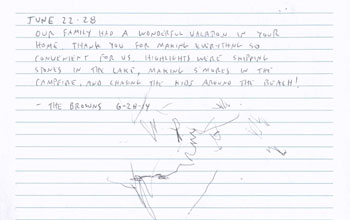 JUNE 22-28
OUR FAMILY HAD A WONDERFUL VACATION IN YOUR
HOME. THANK YOU FOR MAKING EVERYTHING SO
CONVENIENT FOR US. HIGHLIGHTS WERE SKIPPING
STONES IN THE LAKE, MAKING S'MORES IN THE
CAMPFIRE, AND CHASING THE KIDS AROUND THE BEACH!
- THE BROWNS 6-28-14